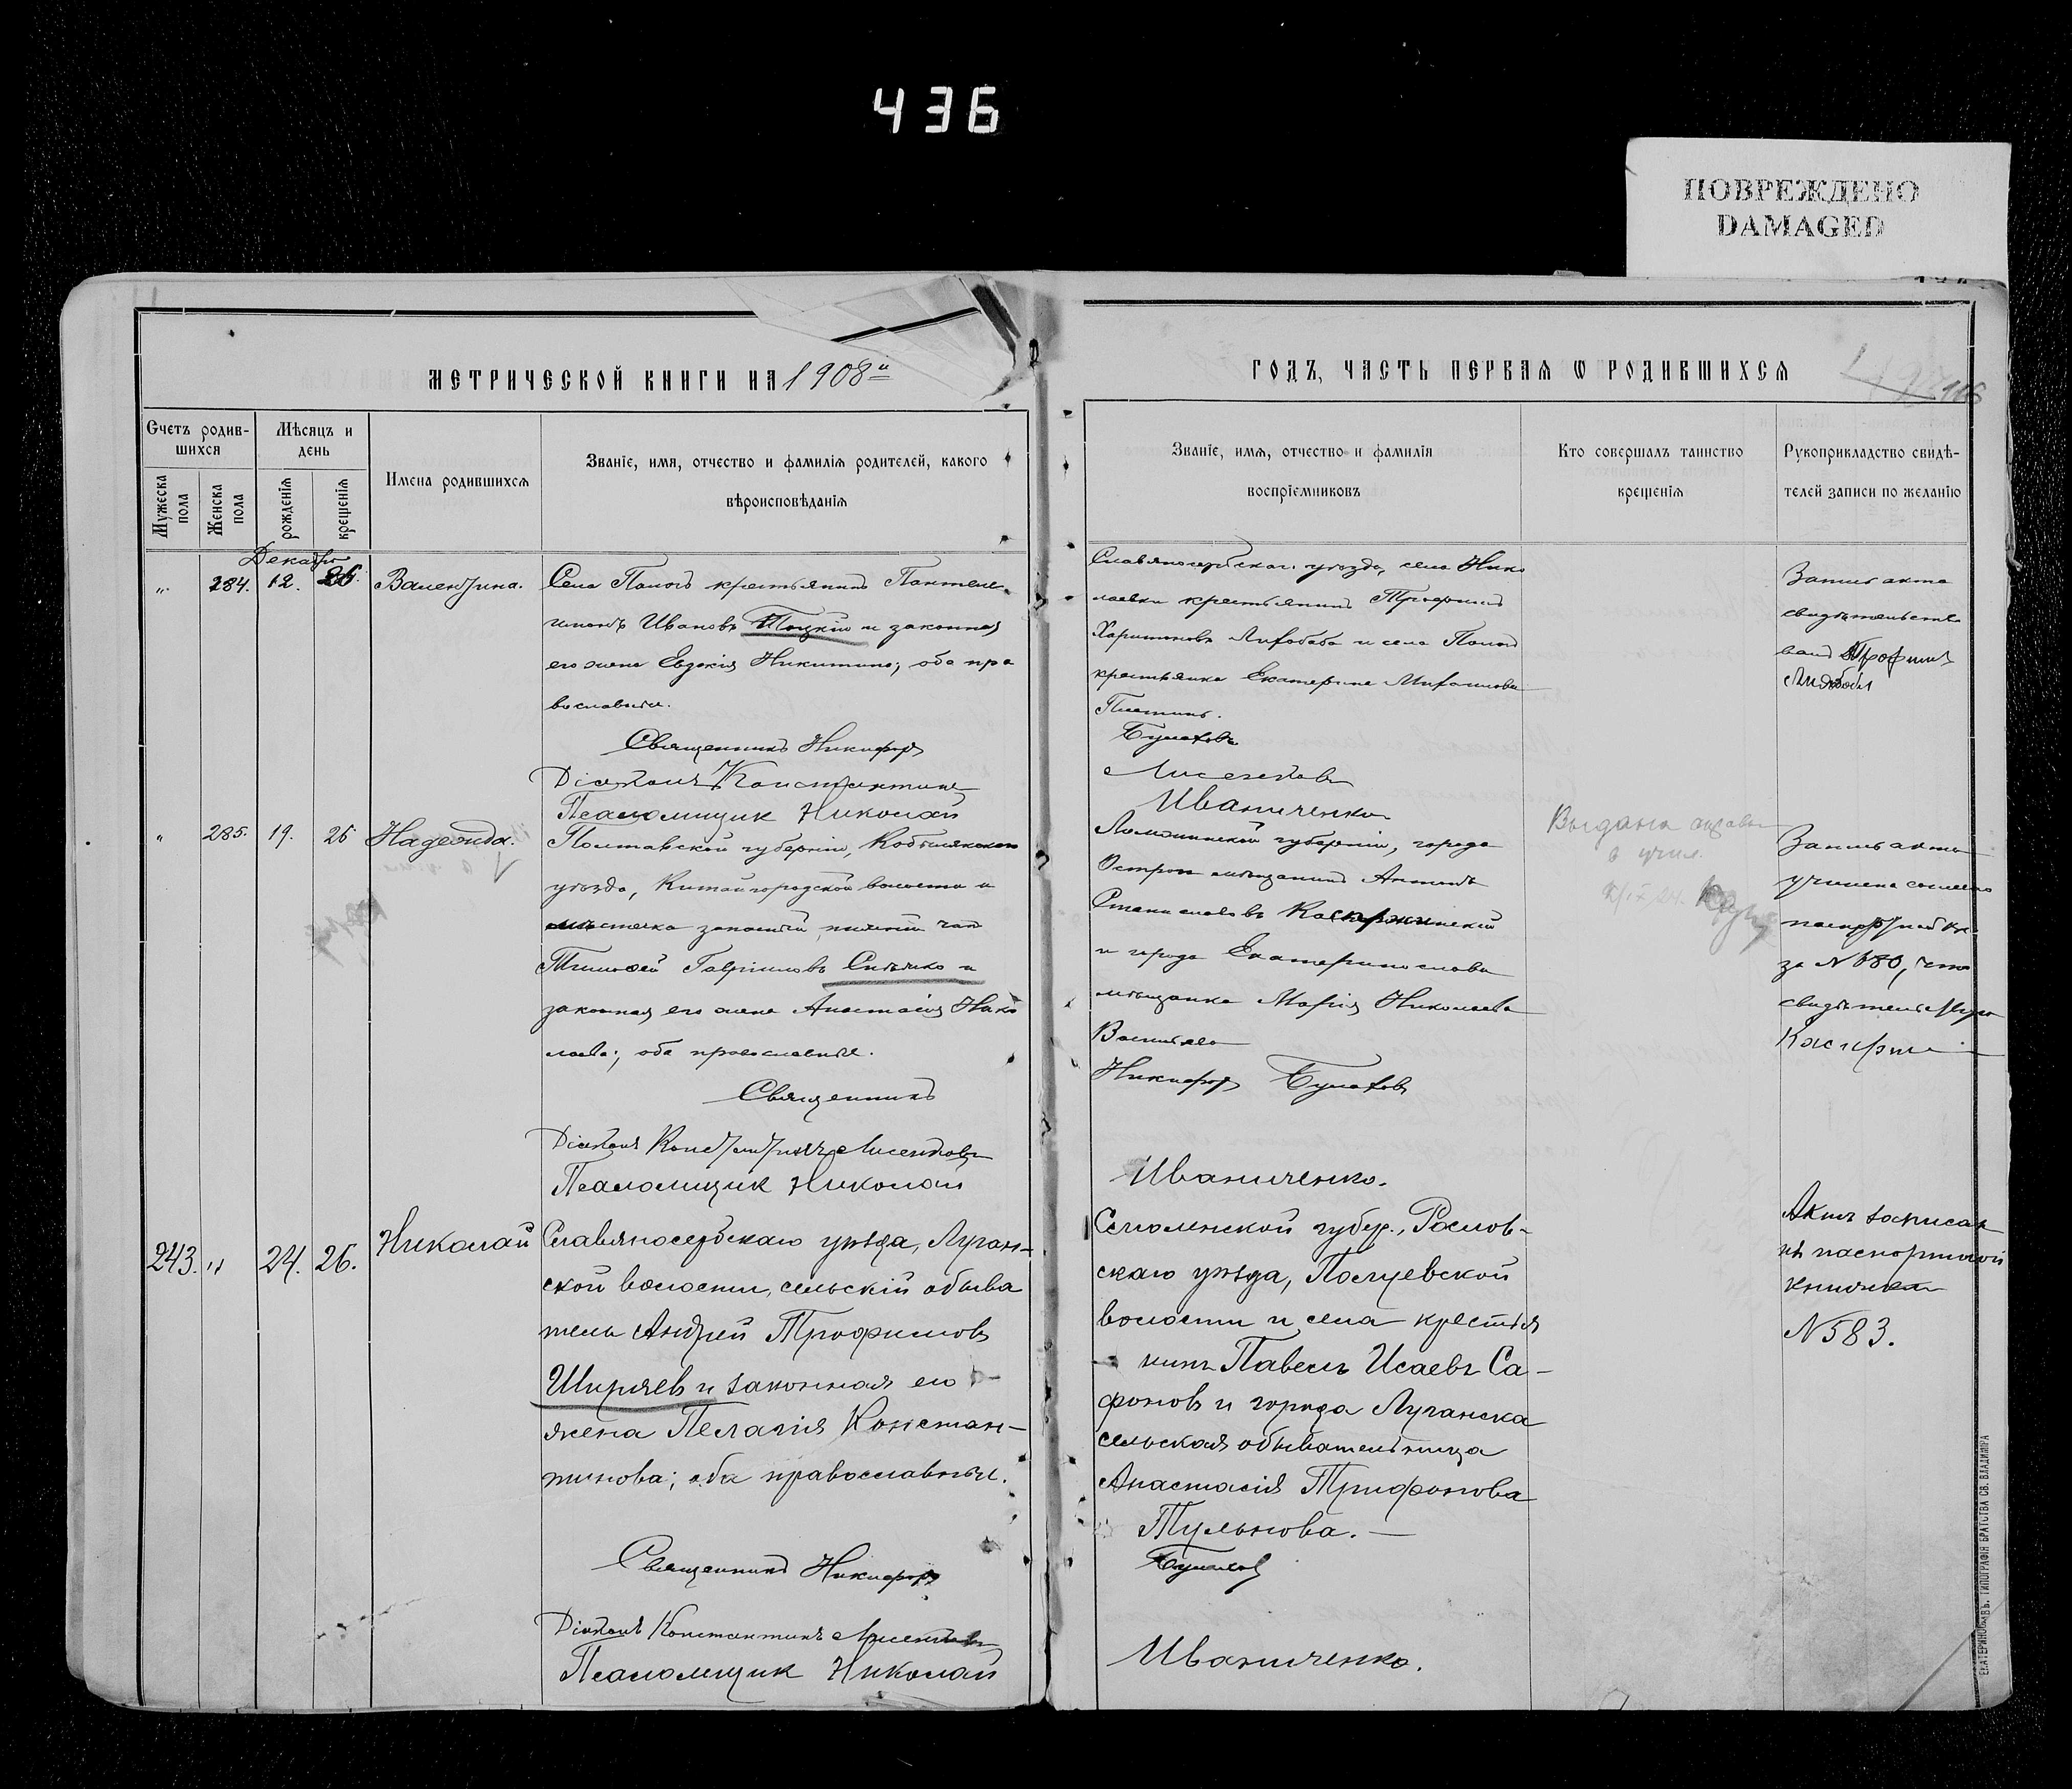 436
ПОВРЕЖДЕНО
DAMAGED
МЕТРИЧЕСКОЙ КНИГИ НА 1908й
ГОДЪ, ЧАСТЬ ПЕРВАЯ Ѡ РОДИВШИХСЯ
116
Счетъ родив-
шихся
Мѣсяцъ и
день
Мужеска
пола
Женска
пола
рожденія
крещенія
Имена родившихся
Званіе, имя, отчество и фамилія родителей, какого
вѣроисповѣданія
Званіе, имя, отчество и фамилія
воспріемниковъ
Кто совершалъ таинство
крещенія
Рукоприкладство свидѣ-
телей записи по желанію
Декабрь
„ 284. 12. 26. Валентина.
Села крестьянинъ Пантеле-
имонъ Ивановъ и законная
его жена Евдокія Никитина; оба пра
вославные.
Священникъ Никифоръ
Діаконъ Константинъ
Псаломщик Николай
Славяносербскаго уѣзда, села Нико
лаевки крестьянинъ Трофимъ
Харитоновъ и села
крестьянка Екатерина
Булаховъ
Лисенковъ
Иваниченко
Запись акта
свидѣтельство
валъ Трофимъ
„ 285. 19. 26 Надежда.
Полтавской губерніи, Кобелякскаго
уѣзда, Китайгородской волости и
мѣстечка запасный чинъ
Тимофей Гавріиловъ и
законная его жена Анастасія Нико
лаева; оба православные.
Священникъ
Діаконъ Константинъ Лисенковъ
Псаломщик Николай
Ломжинской губерніи, города
Остров мѣщанинъ Антонъ
Станиславовъ
и города Екатеринослава
мѣщанка Марія Николаева
Никифоръ Булаховъ
Иваниченко.
Выдана справка
Запись акта
учинена согласно
за N 680, что
243. „ 24. 26. Николай
Славяносербскаго уѣзда, Луган-
ской волости, сельскій обыва
тель Андрей Трофимовъ
Ширяевъ и законная его
жена Пелагія Констан-
тинова; оба православные.
Священникъ Никифоръ
Діаконъ Константинъ Лисенковъ
Псаломщик Николай
Смоленской губер., Рослов-
скаго уѣзда,
волости и села крестья
нинъ Павелъ Исаевъ Са-
фоновъ и города Луганска
сельская обывательница
Анастасія Трифонова
Тулькова.
Булаховъ
Иваниченко.
Актъ записан
по паспортной
книжке
N 583.
ЕКАТЕРИНОСЛАВЪ. ТИПОГРАФІЯ БРАТСТВА СВ. ВЛАДИМІРА